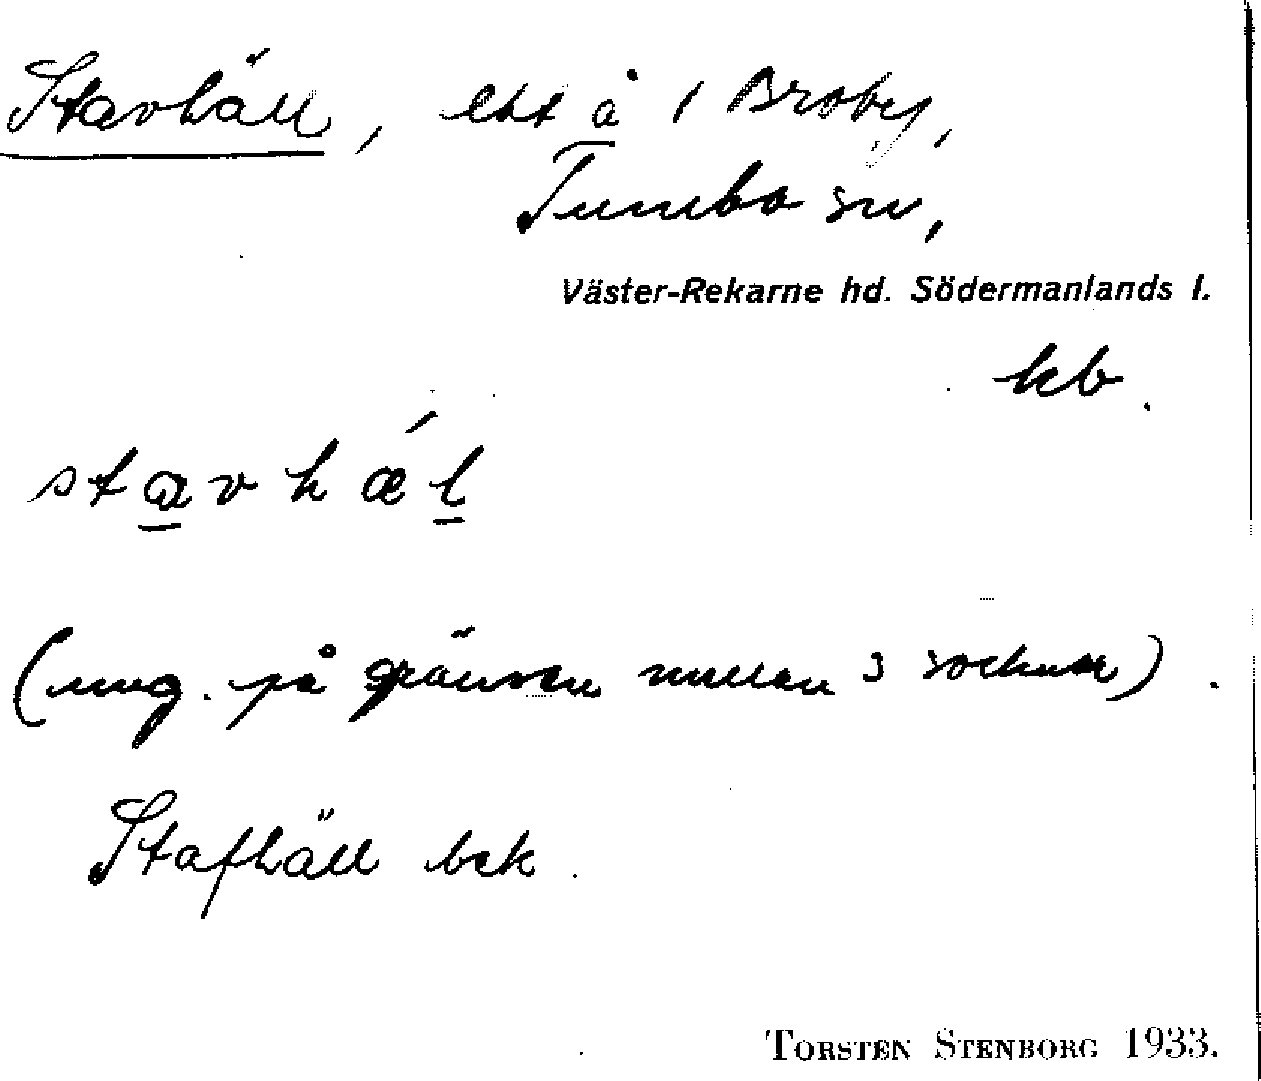 Stavhäll, ett å i Broby,
Tumbo sn,
Väster-Rekarne hd. Södermanlands l.
kb.
stavhǽl
(ung. på gränsen mellan 3 socknar).
Stafhäll bek.
TORSTEN STENBORG 1933.